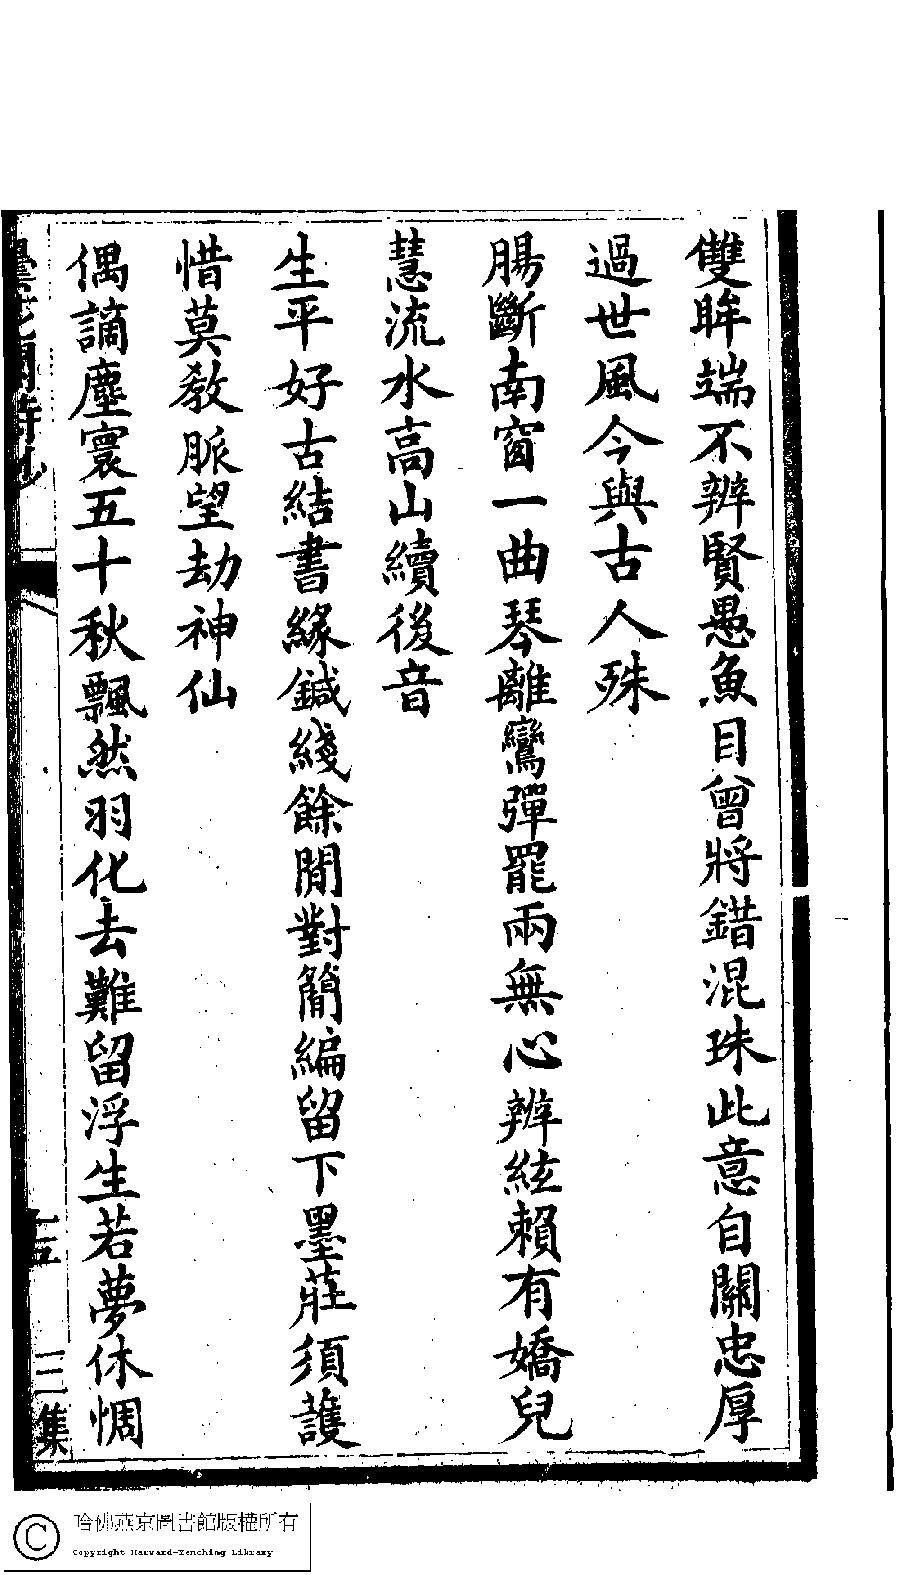 雙眸端不辨賢愚魚目曾將錯混珠此意自關忠厚
過世風今與古人殊
腸斷南窗一曲琴離鸞彈罷兩無心辨絃賴有嬌兒
慧流水高山續後音
生平好古結書緣鍼綫餘閒對簡編留下墨莊須護
惜莫教脈望劫神仙
偶謫塵寰五十秋飄然羽化去難留浮生若夢休惆
三集
哈佛燕京圖書館版權所有
Copyright Harvard-Yenching Library